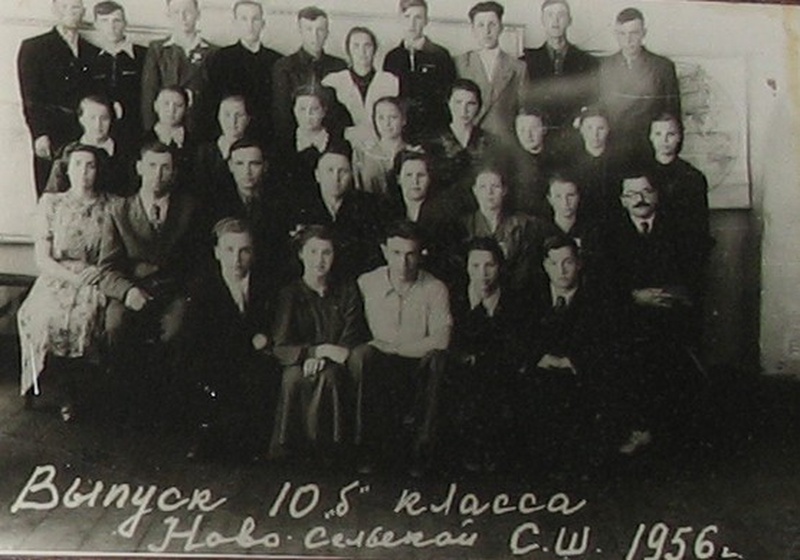 Выпуск 10 „б" класса
Ново-Сельской С.Ш. 1956 г.